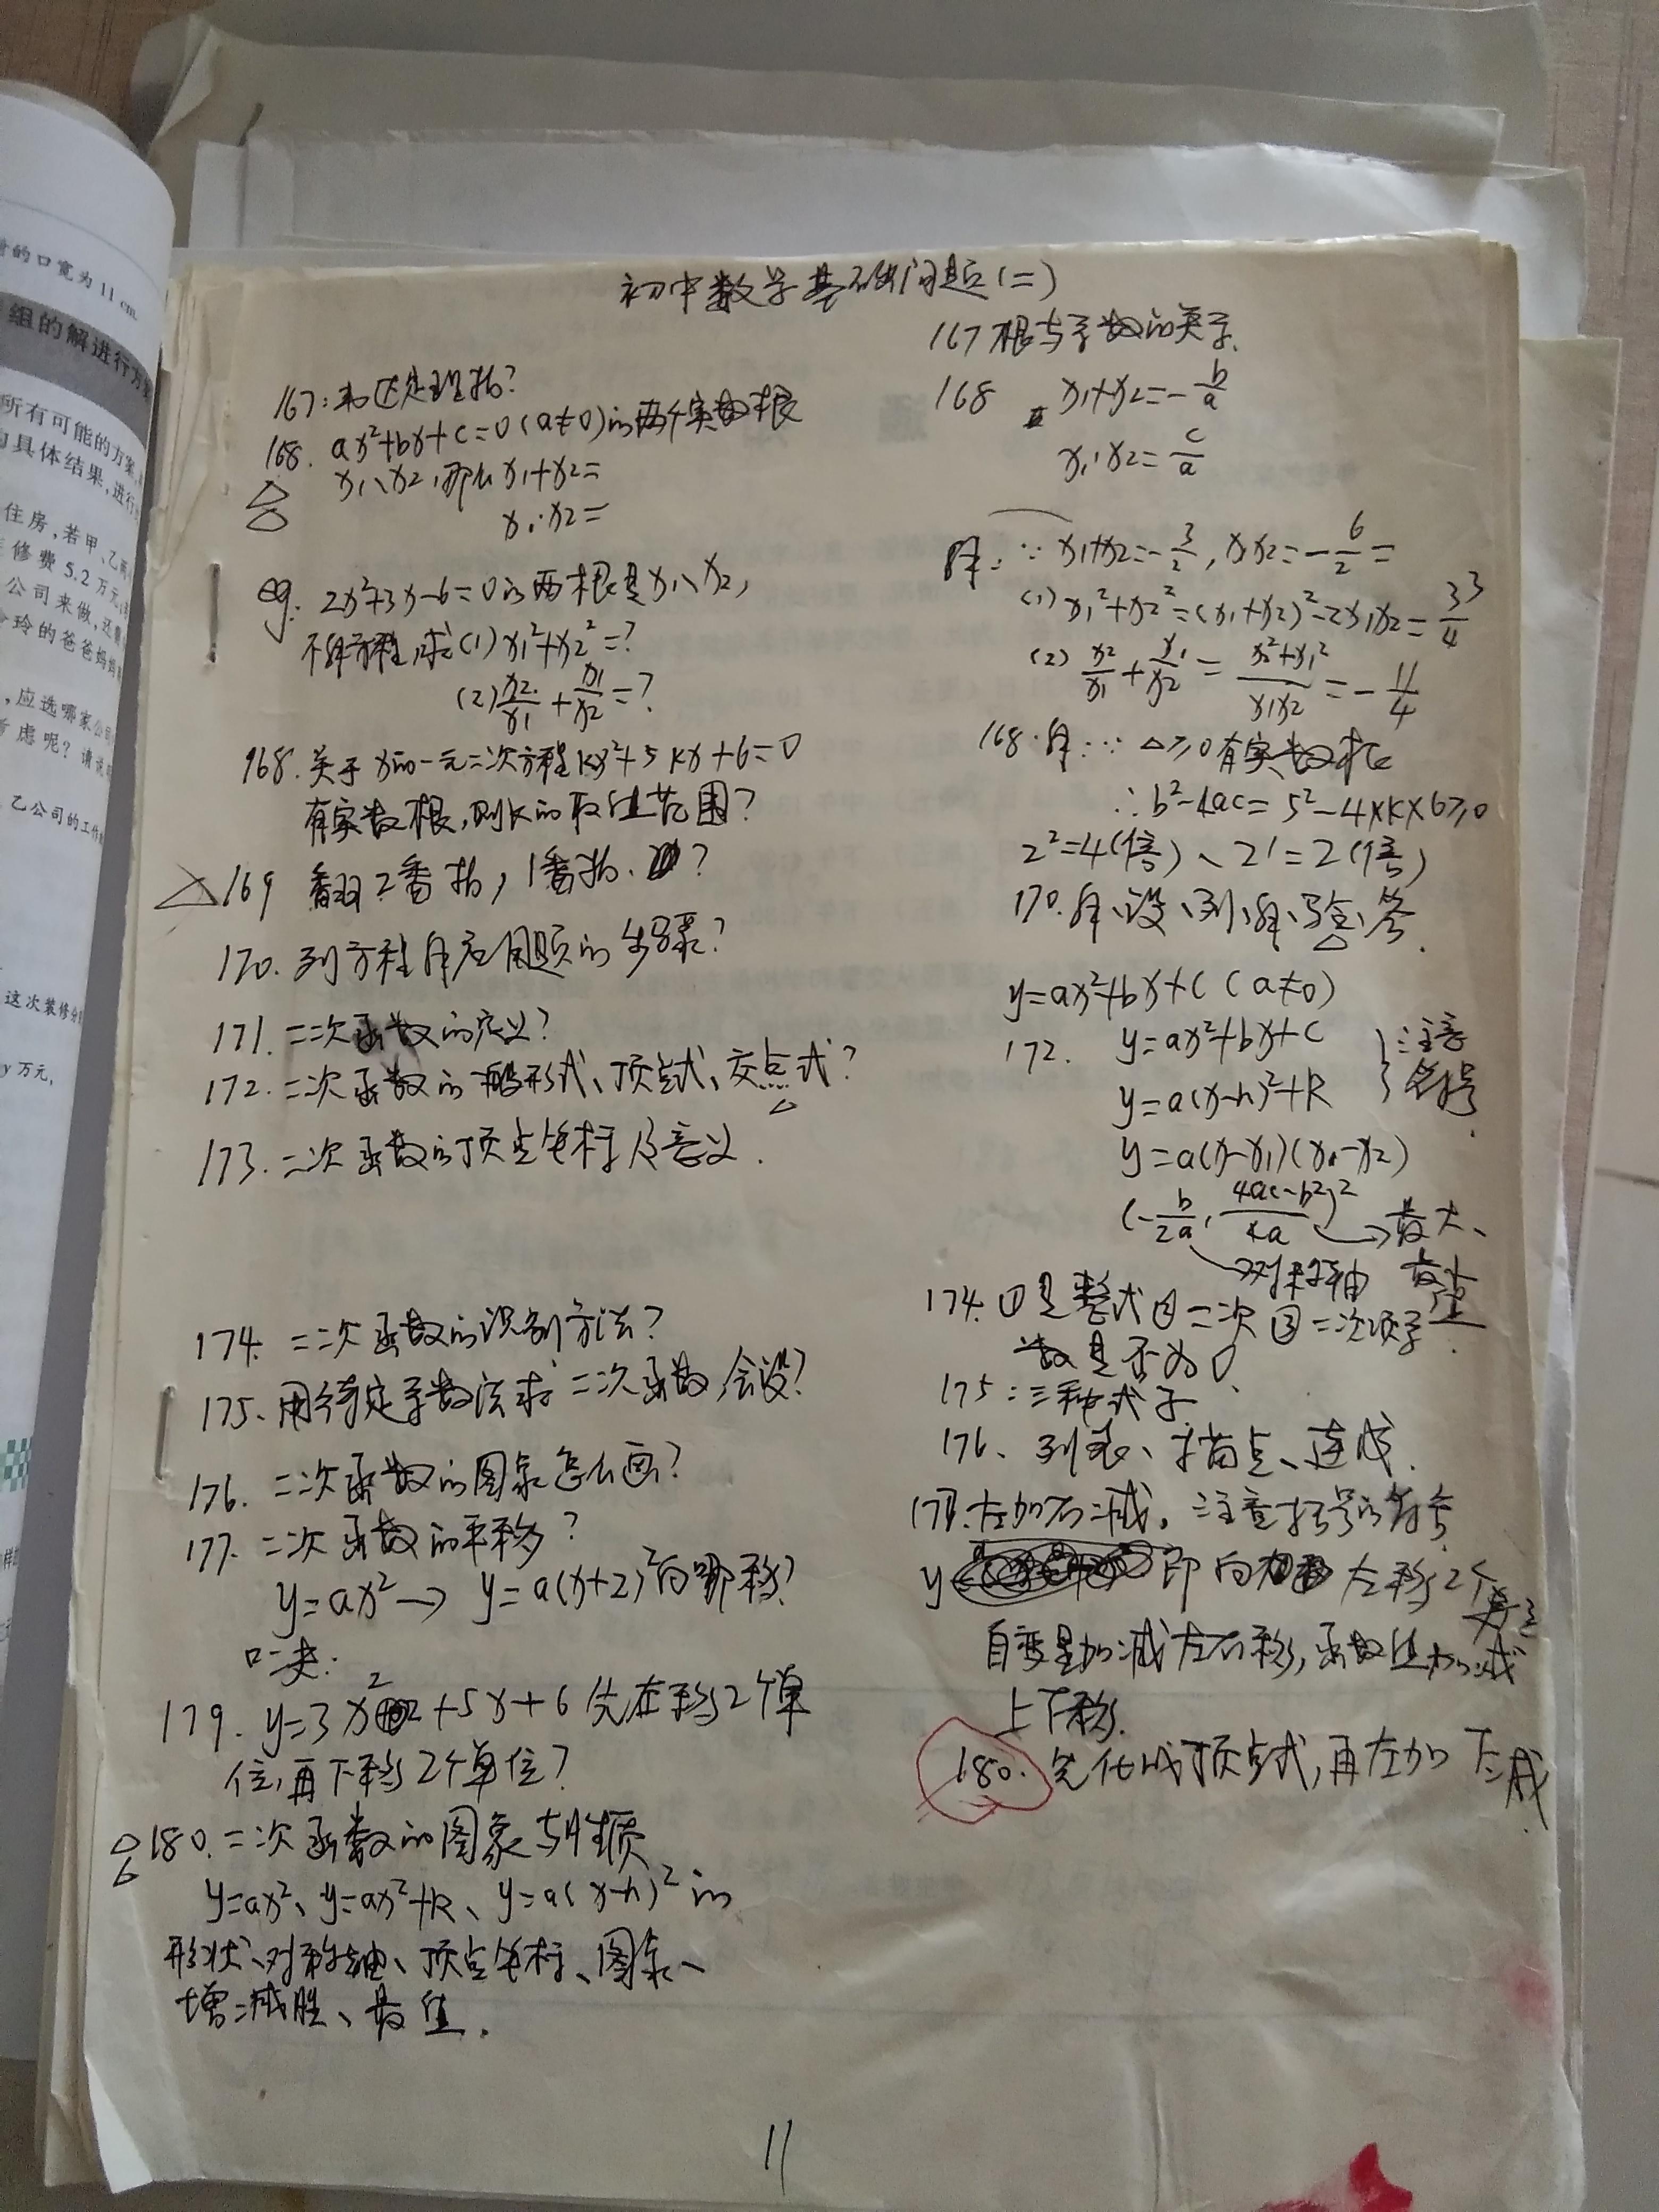 初中数学基础问题(二)
167:韦达定理指?
168. ax²+bx+c=0(a≠0)的两个实数根
x₁、x₂,那么x₁+x₂=
x₁·x₂=
eg: 2x²+3x-6=0的两根是x₁、x₂,
不解方程,求(1)x₁²+x₂²=?
(2)x₂/x₁+x₁/x₂=?
168. 关于x的一元二次方程kx²+5kx+6=0
有实数根,则k的取值范围?
169 翻2番指,1番指.?
170. 列方程解应用题的步骤?
171. 二次函数的定义?
172. 二次函数的一般形式、顶点式、交点式?
173. 二次函数的顶点坐标及意义.
174. 二次函数的识别方法?
175. 用待定系数法求二次函数,会设?
176. 二次函数的图象怎么画?
177. 二次函数的平移?
y=ax²→y=a(x+2)²向哪移?
口决:
179. y=3x²+5x+6先左移2个单
位,再下移2个单位?
180. 二次函数的图象与性质
y=ax²、y=ax²+k、y=a(x-h)²的
形状、对称轴、顶点坐标、图象、
增减性、最值.
167 根与系数的关系.
168 x₁+x₂=-b/a
x₁·x₂=c/a
解:∵x₁+x₂=-3/2,x₁x₂=-6/2=
(1)x₁²+x₂²=(x₁+x₂)²-2x₁x₂=33/4
(2)x₂/x₁+x₁/x₂=(x₂²+x₁²)/(x₁x₂)=-11/4
168.解:∵△≥0有实数根
∴b²-4ac=5²-4×k×6≥0
2²=4(倍)、2¹=2(倍)
170.解、设、列、解、验、答.
y=ax²+bx+c(a≠0)
172. y=ax²+bx+c
y=a(x-h)²+k
注意
符号.
y=a(x-x₁)(x-x₂)
(-b/2a,(4ac-b²)²/4a)→最大、
→对称轴 最小值
174.①是整式②二次③二次项系
数是否为0.
175:三种式子
176、列表、描点、连成.
177.左加右减。注意括号的符号
y 即向左移2个单位
自变量加减左右移,函数值加减
上下移.
180. 先化成顶点式,再左加下减.
11
的口宽为11cm.
组的解进行方案
所有可能的方案,
具体结果,进行
住房,若甲、乙两
修费5.2万元;
公司来做,还需
玲的爸爸妈妈
,应选哪家公司
虑呢?请说
乙公司的工作
这次装修
y万元,